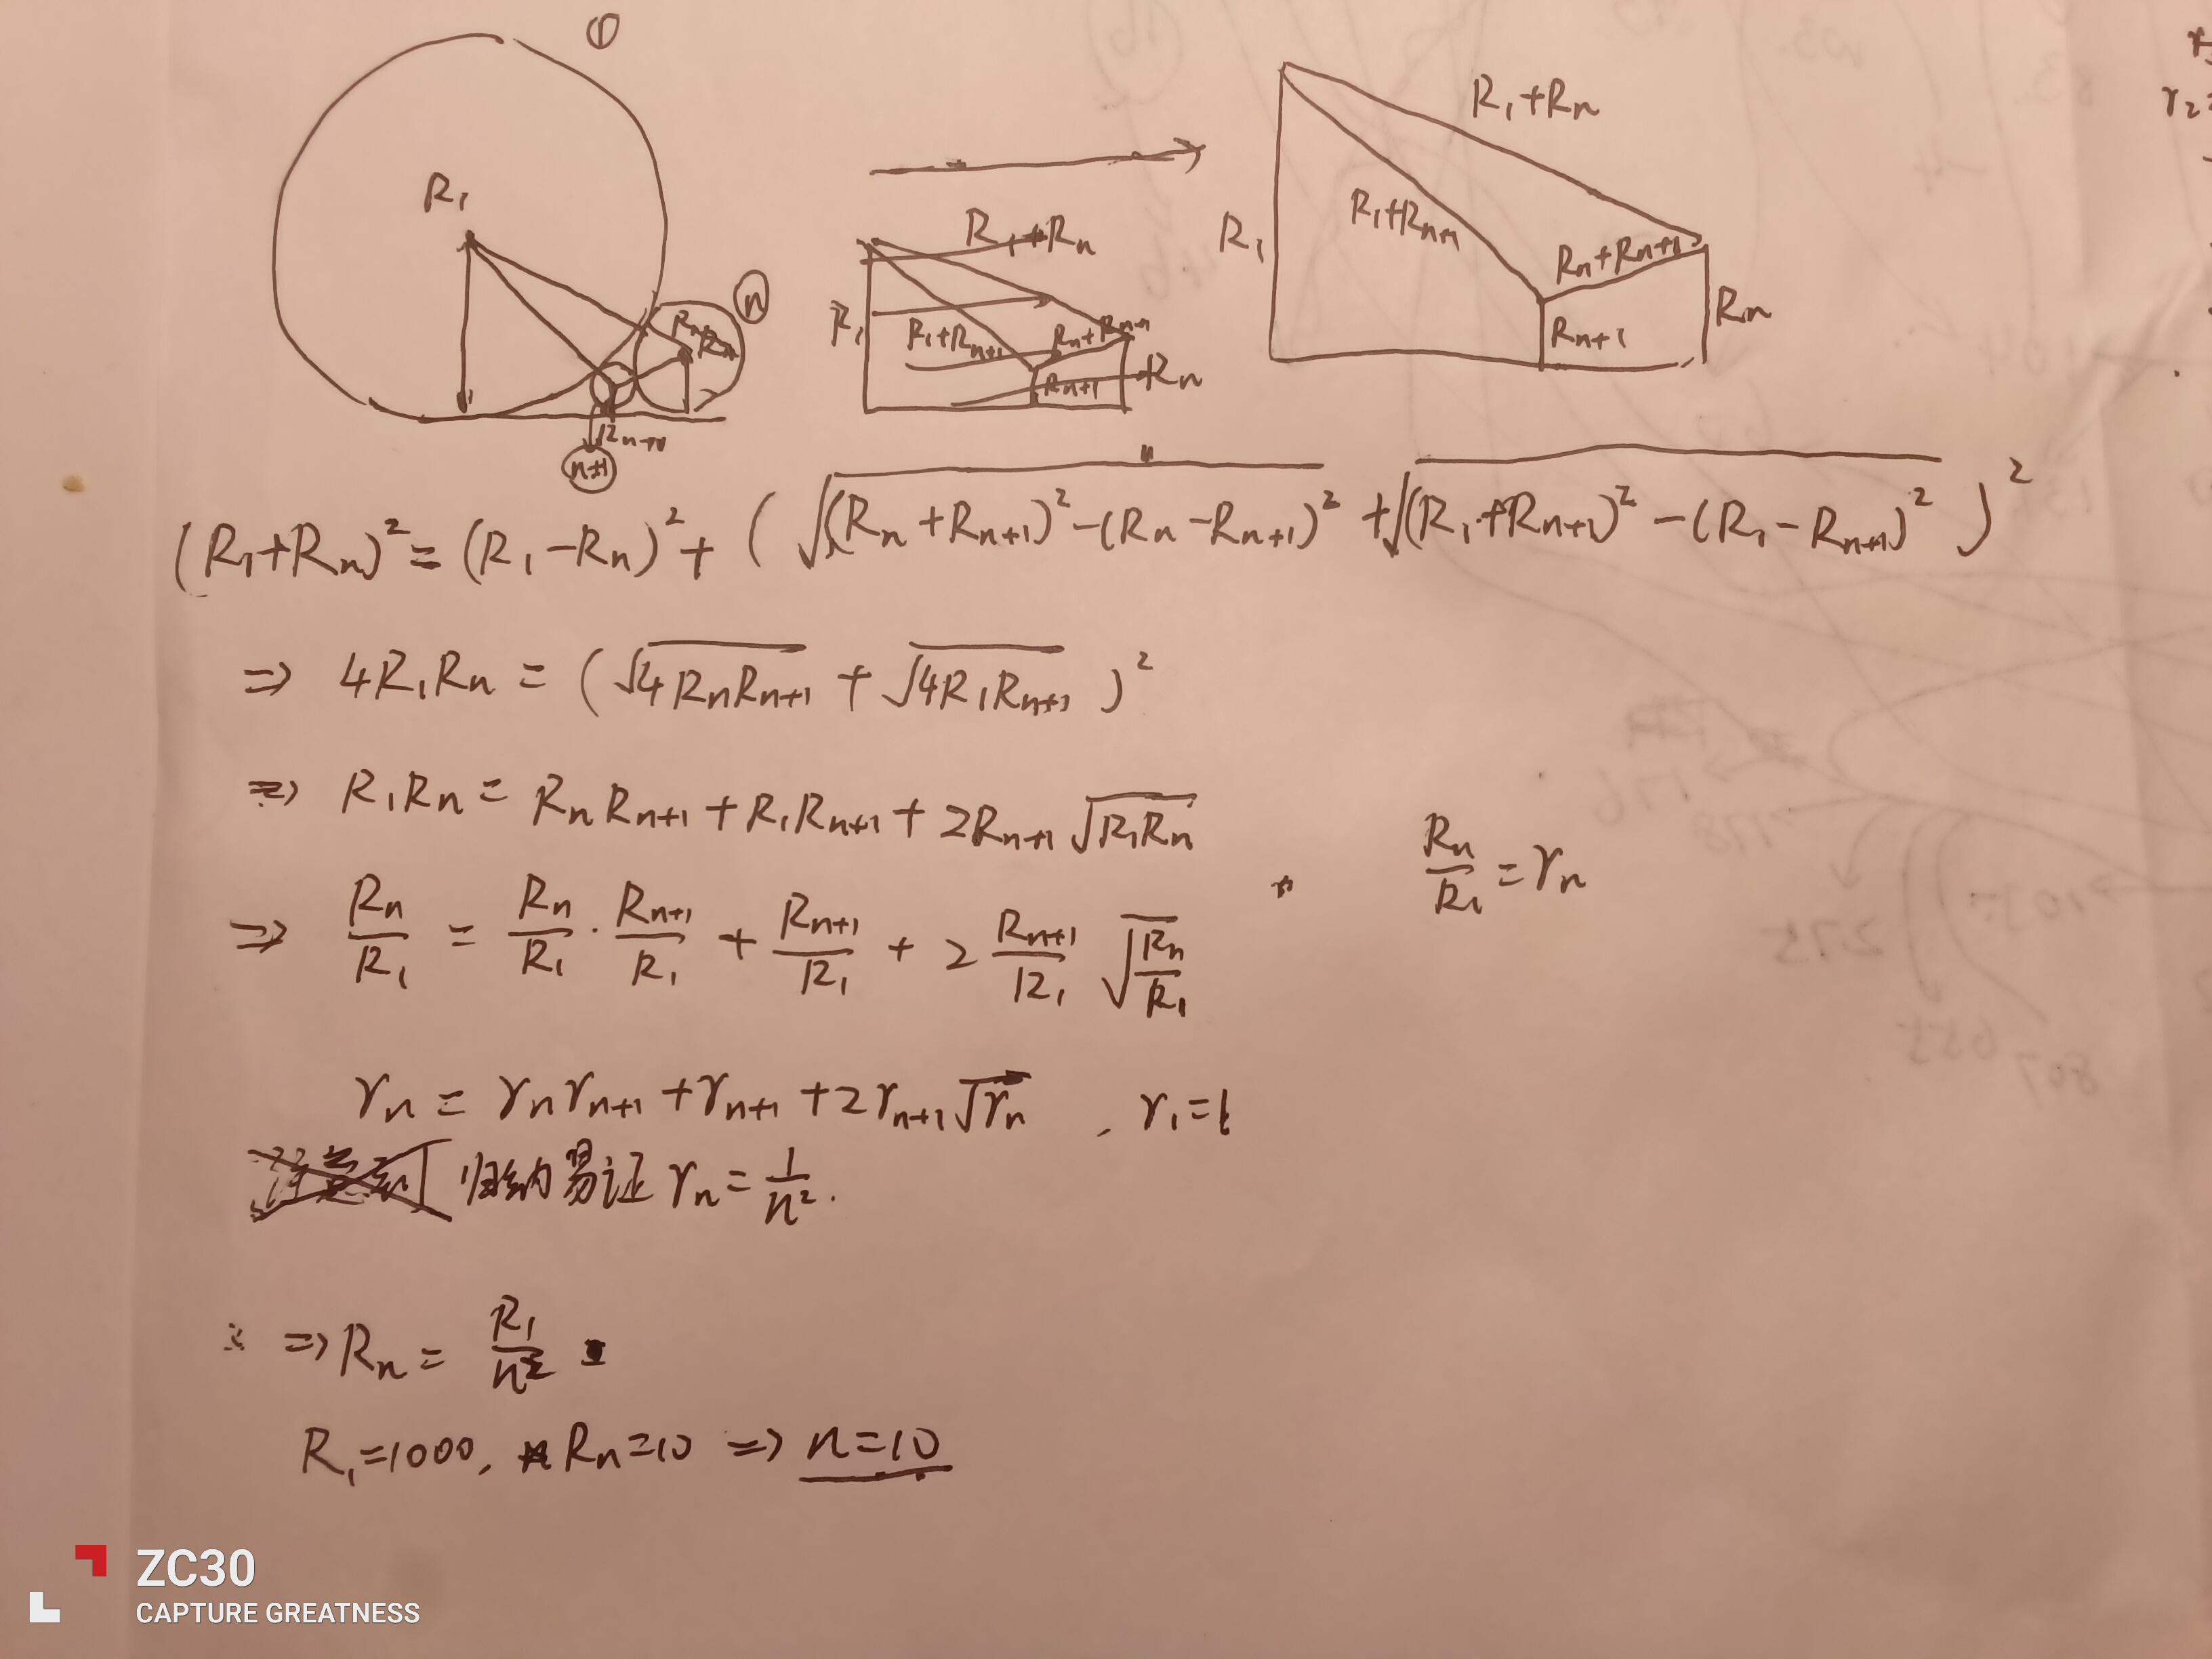 ①
R₁
Rₙ
n
Rₙ₊₁
n+1
R₁+Rₙ
R₁
R₁+Rₙ₊₁
Rₙ+Rₙ₊₁
Rₙ₊₁
Rₙ
R₁+Rₙ
R₁
R₁+Rₙ₊₁
Rₙ+Rₙ₊₁
Rₙ₊₁
Rₙ
(R₁+Rₙ)²=(R₁-Rₙ)²+(√((Rₙ+Rₙ₊₁)²-(Rₙ-Rₙ₊₁)²)+√((R₁+Rₙ₊₁)²-(R₁-Rₙ₊₁)²))²
⇒ 4R₁Rₙ=(√(4RₙRₙ₊₁)+√(4R₁Rₙ₊₁))²
⇒ R₁Rₙ=RₙRₙ₊₁+R₁Rₙ₊₁+2Rₙ₊₁√(R₁Rₙ)
⇒ Rₙ/R₁=Rₙ/R₁·Rₙ₊₁/R₁+Rₙ₊₁/R₁+2 Rₙ₊₁/R₁ √(Rₙ/R₁)
Rₙ/R₁=rₙ
rₙ=rₙrₙ₊₁+rₙ₊₁+2rₙ₊₁√rₙ , r₁=1
归纳易证 rₙ=1/n².
⇒Rₙ=R₁/n²
R₁=1000, Rₙ=10 ⇒ n=10
ZC30
CAPTURE GREATNESS